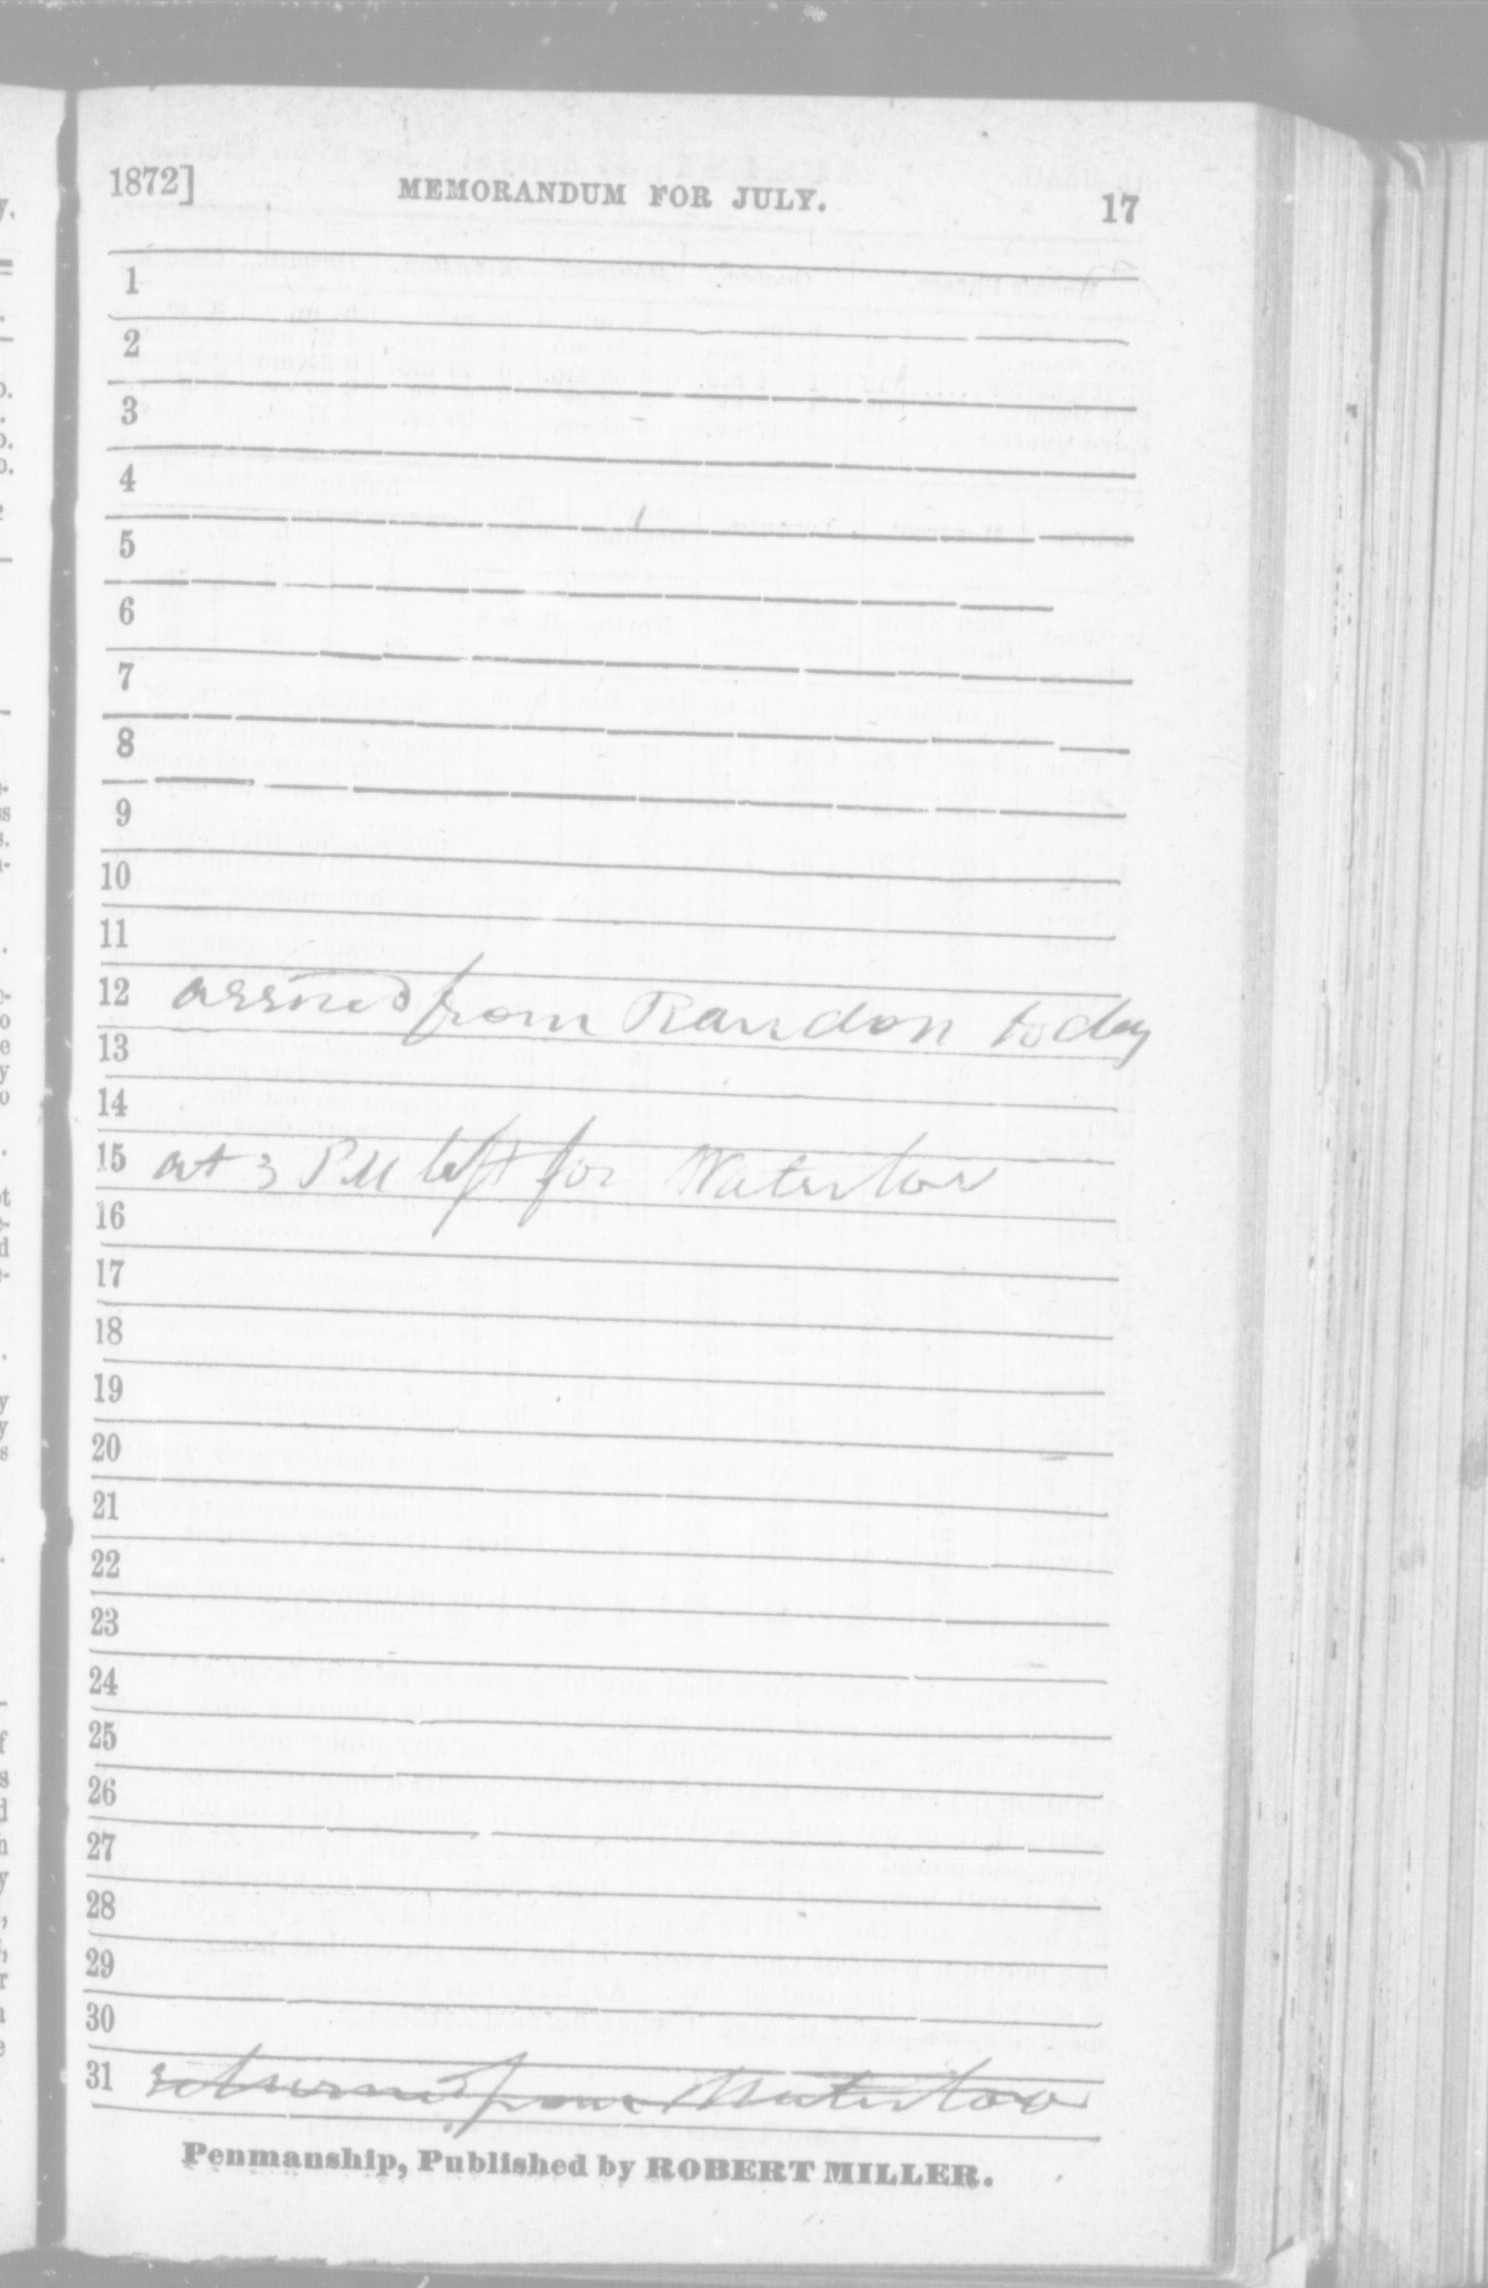 1872] MEMORANDUM FOR JULY. 17
1
2
3
4
5
6
7
8
9
10
11
12 arrived from Rawdon today
13
14
15 at 3 P.M left for Waterloo
16
17
18
19
20
21
22
23
24
25
26
27
28
29
30
31 returned from Waterloo
Penmanship, Published by ROBERT MILLER.